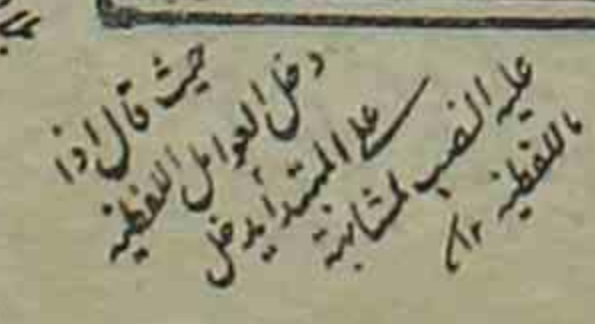 حيث قال اذا
دخل العوامل اللفظية
على المبتدأ يدخل
عليه النصب لمشابهته
باللفظية ١٢